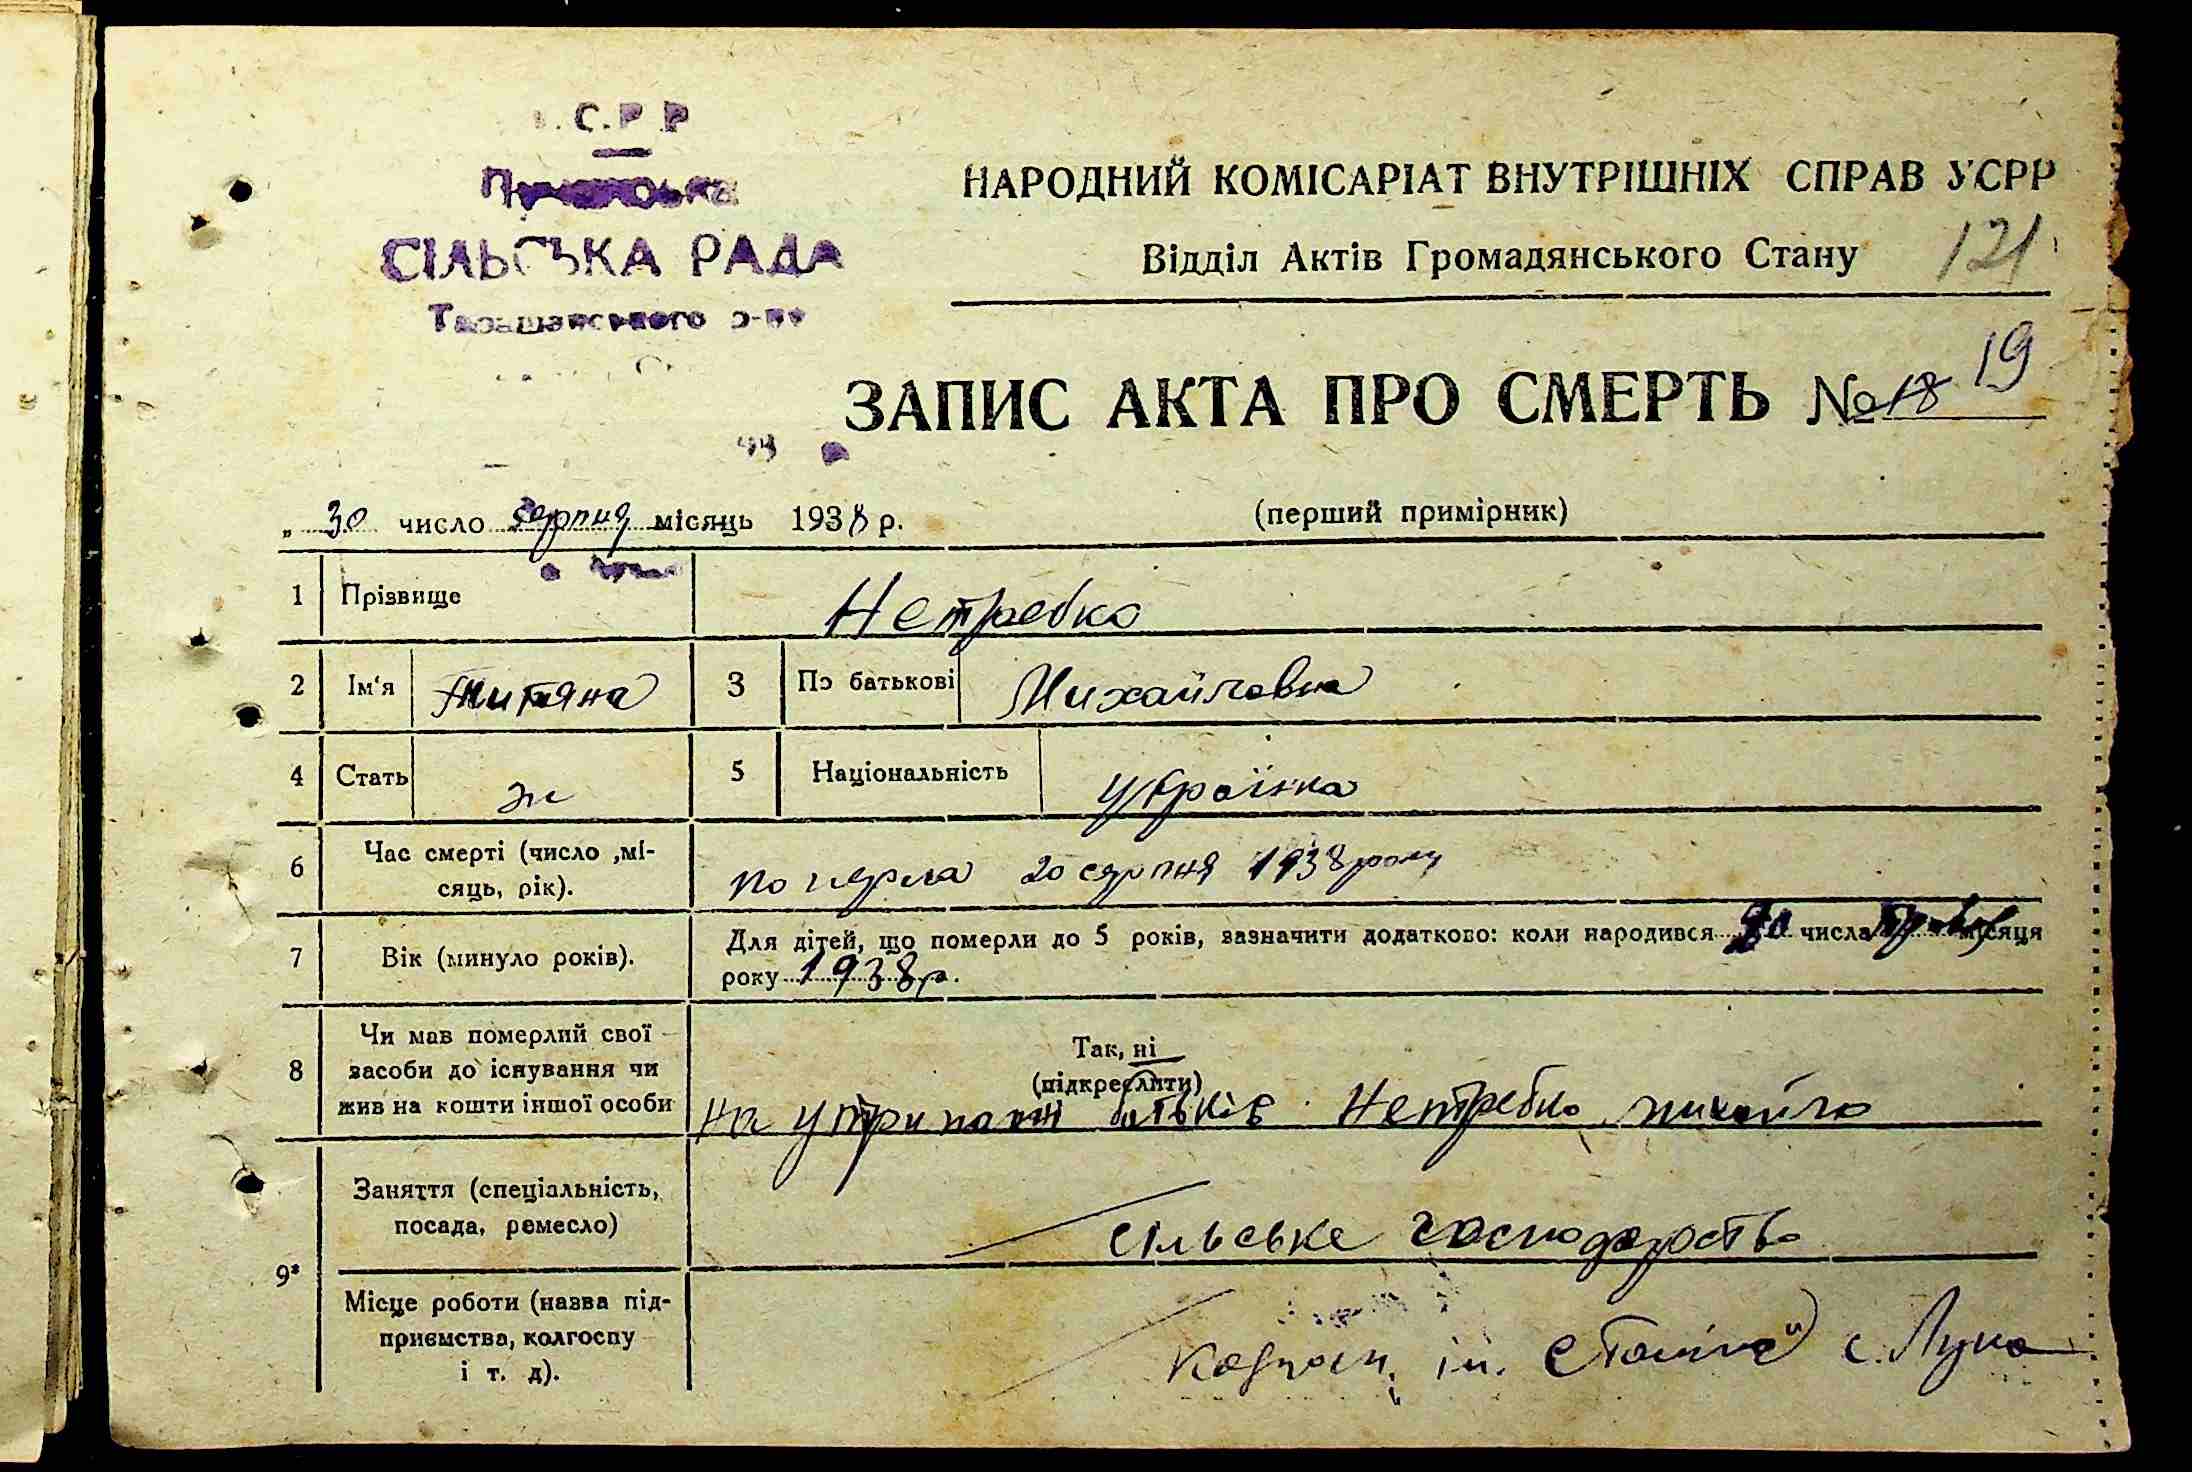 .С.Р.Р
СІЛЬСЬКА РАДА
Таращанського р-ну
НАРОДНИЙ КОМІСАРІАТ ВНУТРІШНІХ СПРАВ УСРР
Відділ Актів Громадянського Стану 121
ЗАПИС АКТА ПРО СМЕРТЬ № 18 19
„ 30 число серпня місяць 1938 р. (перший примірник)
1 Прізвище Нетребко
2 Ім'я Титяна 3 По батькові Михайловна
4 Стать ж 5 Національність українка
6 Час смерті (число ,мі-
сяць, рік). померла 20 серпня 1938 року
7 Вік (минуло років). Для дітей, що померли до 5 років, зазначити додатково: коли народився числа місяця
року 1938 р.
8 Чи мав померлий свої
засоби до існування чи
жив на кошти іншої особи
Так, ні
(підкреслити)
на утриманні батьків Нетребко михайло
9* Заняття (спеціальність,
посада, ремесло) сільське господарство
Місце роботи (назва під-
приємства, колгоспу
і т. д).
ім. Сталіна" с. Лука